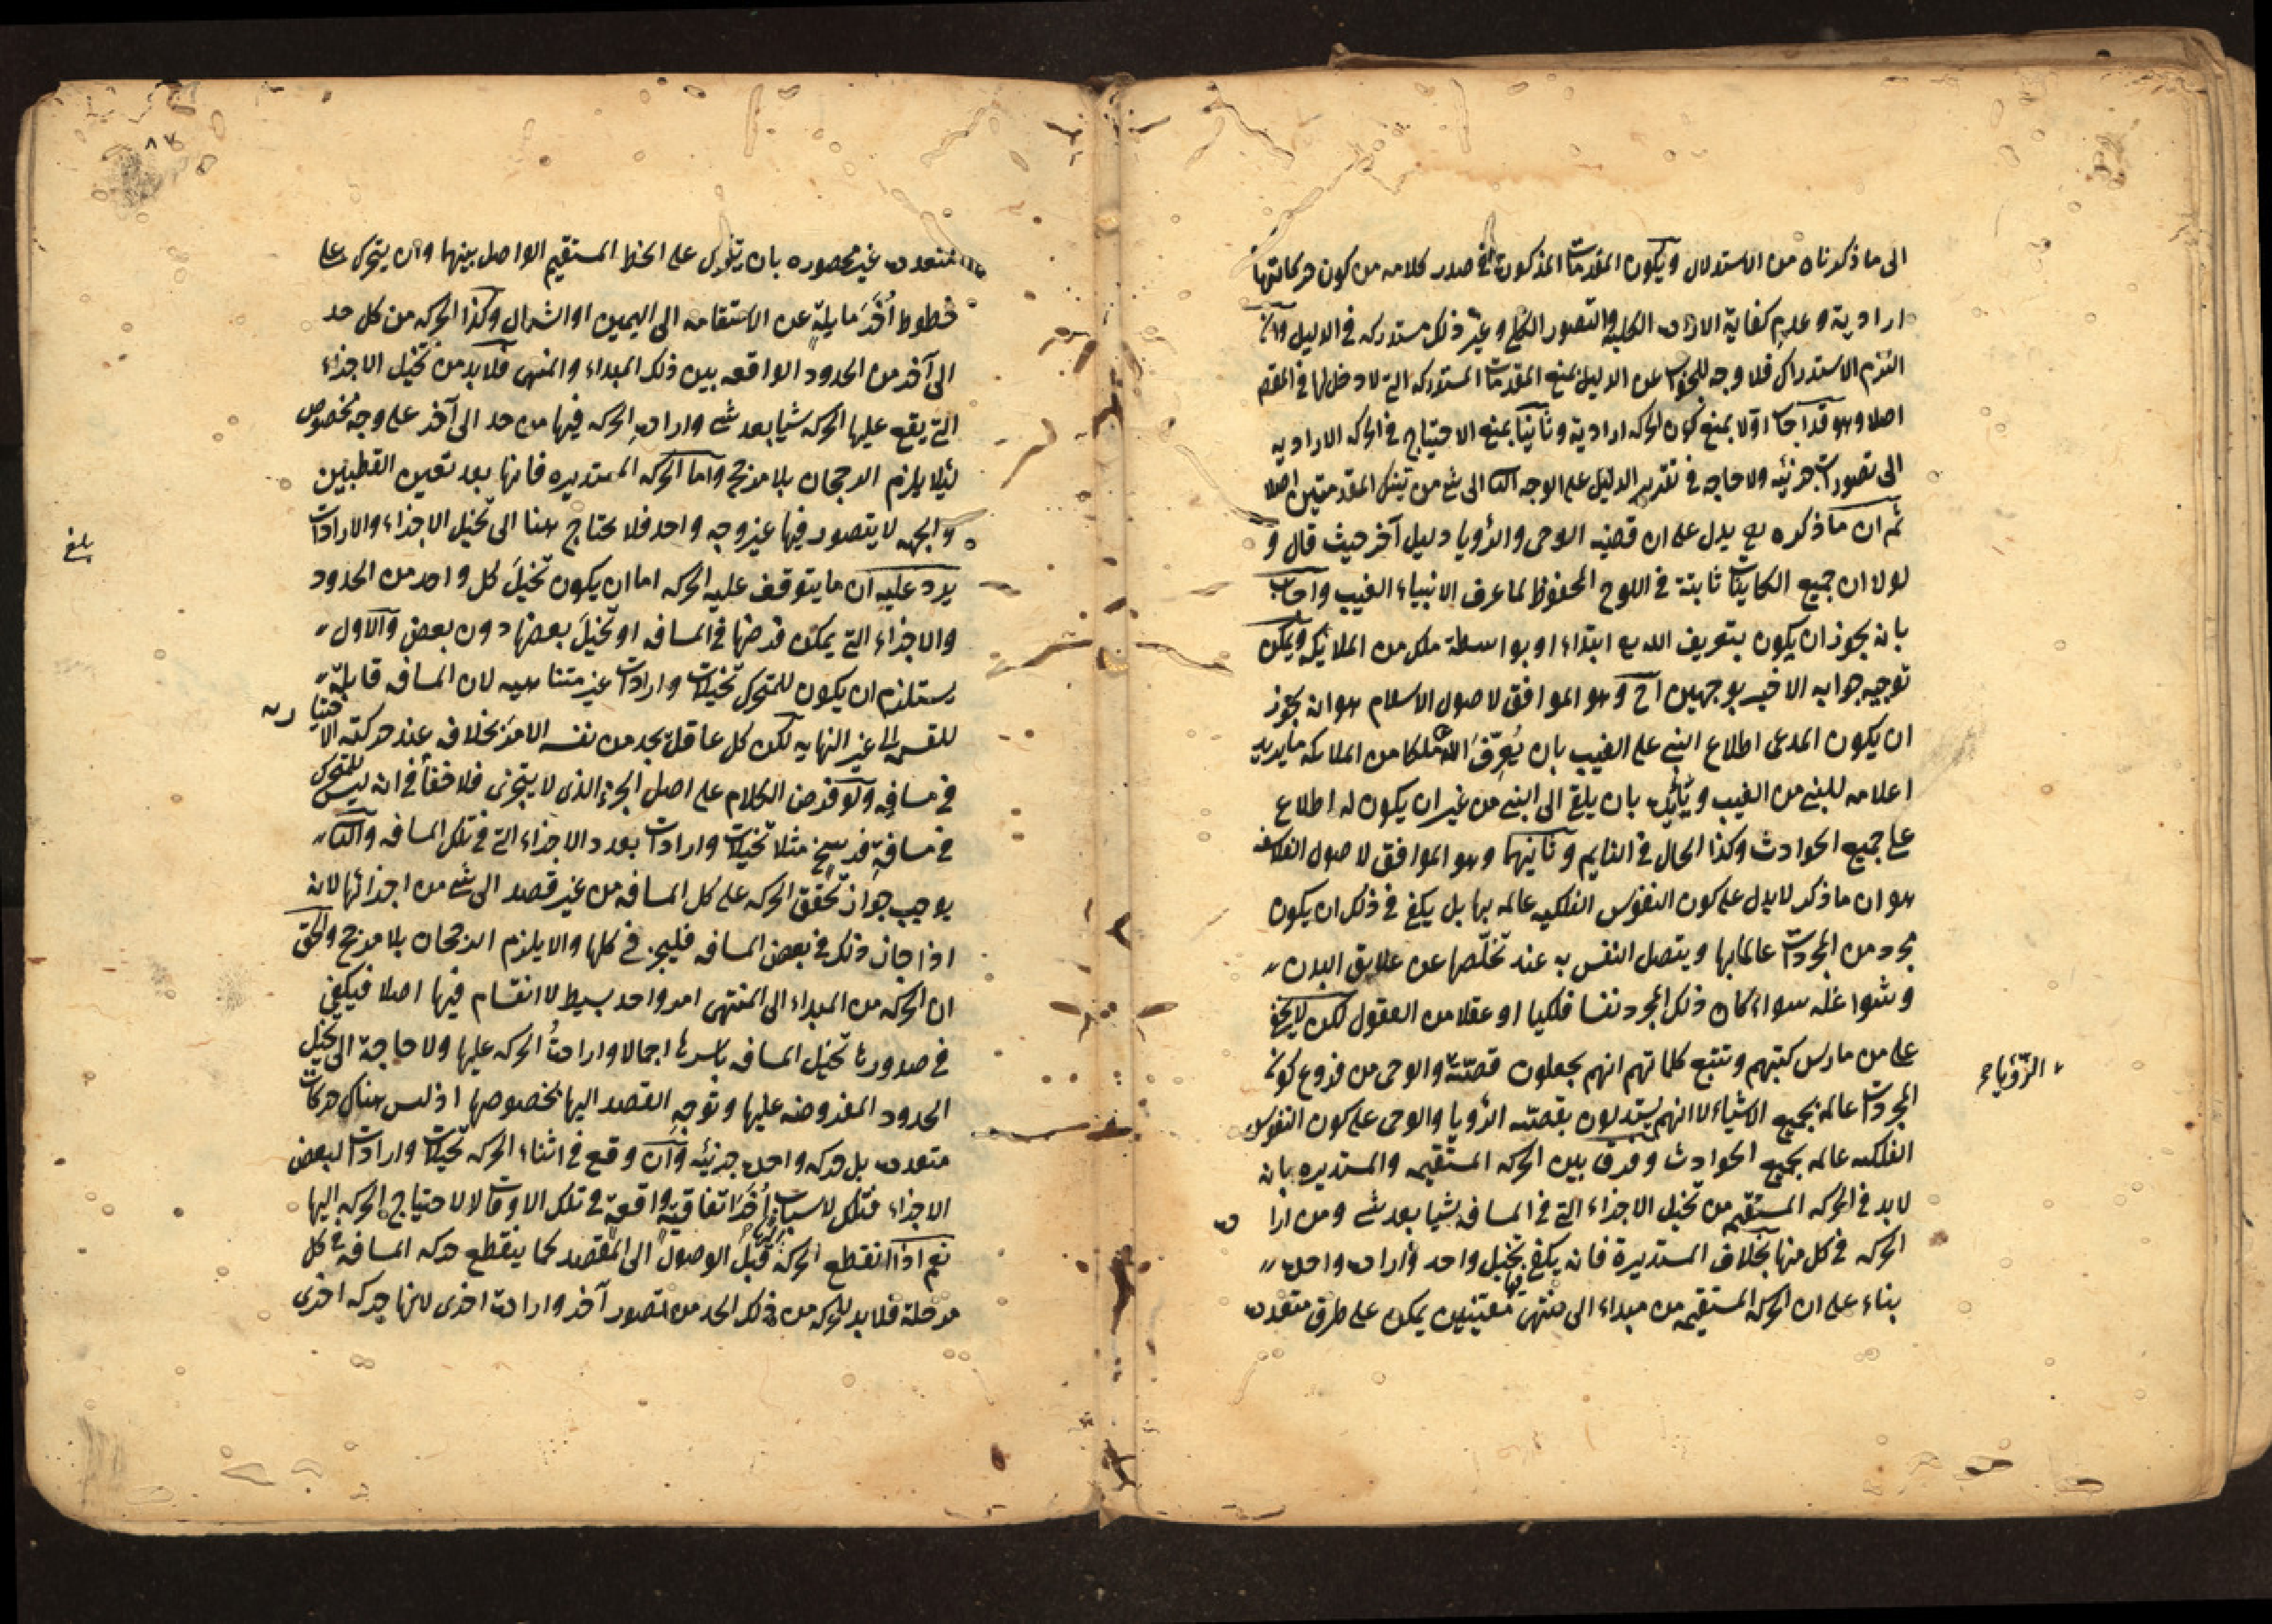 الى ما ذكرناه من الاستدلال ويكون المقدمات المذكورة في صدر كلامه من كون حركاتها
ارادية وعدم كفاية الارادة الكلية والتصور الكلي وغير ذلك مستدركه في الدليل وان
التزم الاستدراك فلا وجه للجواب عن الدليل بمنع المقدمات المستدركه التي لا دخل لها في المقصد
اصلا وهو قد اجاب اولا بمنع كون الحركه ارادية وثانيا بمنع الاحتياج في الحركه الاراديه
الى تصورات جزئيه ولا حاجه في تقرير الدليل على الوجه الثاني الى شي من تينك المقدمتين اصلا
ثم ان ما ذكره يدل على ان قضيه الوحى والرؤيا دليل آخر حيث قال و
لولا ان جميع الكاينات ثابتة في اللوح المحفوظ لما عرف الانبياء الغيب واجاب
بانه يجوز ان يكون بتعريف الله تع ابتداء او بواسطة ملك من الملايكه ويمكن
توجيه جوابه الاخير بوجهين آخ وهو الموافق لاصول الاسلام هو انه يجوز
ان يكون المدعى اطلاع النبي على الغيب بان يُعرِّفَ الله ملكا من الملايكه ما يريد
اعلامه للنبي من الغيب بان يلقى الى النبي من غير ان يكون له اطلاع
على جميع الحوادث وكذا الحال في النايم وثانيهما وهو الموافق لاصول الفلاسفه
هو ان ما ذكر لا يدل على كون النفوس الفلكيه عالمه بها بل يكفي في ذلك ان يكون
مجرد من المجردات عالما بها ويتصل النفس به عند تخلّصها عن علايق البدن
وشواغله سواء كان ذلك المجرد نفسا فلكيا او عقلا من العقول لكن لا يخفى
على من مارس كتبهم وتتبع كلماتهم انهم يجعلون قصّتَه والوحى من فروع كون
الرّؤيا صح
المجردات عالمه بجميع الاشياء لا انهم يستدلون بقصته الرؤيا والوحى على كون النفوس
الفلكيه عالمه بجميع الحوادث وفرق بين الحركه المستقيمه والمستديره بانه
لا بد في الحركه المستقيم من تخيل الاجزاء التي في المسافه شيا بعد شي ومن ارادة
الحركه في كل منها بخلاف المستديرة فانه يكفي فيها تخيل واحد وارادة واحدة
بناء على ان الحركه المستقيمه من مبداء الى منتهى معينين يمكن على طرق متعددة
متعددة غير محصوره بان يتحرك على الخط المستقيم الواصل بينهما وان يتحرك على
خطوط اُخَرَ مايلةٍ عن الاستقامه الى اليمين او الشمال وكذا الحركه من كل حد
الى آخر من الحدود الواقعه بين ذلك المبداء والمنتهى فلا بد من تخيل الاجزاء
التي يقع عليها الحركه شيا بعد شي وارادة الحركه فيها من حد الى آخر على وجه مخصوص
لئلا يلزم الرجحان بلا مرجح واما الحركه المستديره فانها بعد تعين القطبين
والجهه لا يتصور فيها غير وجه واحد فلا يحتاج هنا الى تخيل الاجزاء والارادات
بلغ
يرد عليه ان ما يتوقف عليه الحركه اما ان يكون تخيلَ كل واحد من الحدود
والاجزاء التي يمكن فرضها في المسافه او تخيلَ بعضها دون بعض والاول
يستلزم ان يكون للمتحرك تخيلات وارادات غير متناهيه لان المسافه قابلة
للقسمه الى غير النهايه لكن كل عاقل يجد من نفسه الامر بخلافه عند حركته الاختيارية
في مسافةٍ ولو فرض الكلام على اصل الجزء الذي لا يتجزى فلا خفأ في انه ليس للمتحرك
في مسافةِ فرسخ مثلا تخيلات وارادات بعدد الاجزاء التي في تلك المسافه والثاني
يوجب جواز تحقق الحركه على كل المسافه من غير قصد الى شي من اجزائها لانه
اذا جاز ذلك في بعض المسافه فليجز في كلها والا يلزم الرجحان بلا مرجح والحق
ان الحركه من المبداء الى المنتهى امر واحد بسيط لا انقسام فيها اصلا فيكفي
في صدورها تخيل المسافه باسرها اجمالا وارادةُ الحركه عليها ولا حاجة الى تخيل
الحدود المفروضه عليها وتوجه القصد اليها بخصوصها اذ ليس هناك حركات
متعددة بل حركه واحدة جزئيه وان وقع في اثناء الحركه تخيلات وارادات لبعض
الاجزاء فتلك لاسباب اُخَرَ اتفاقيةٍ واقعةٍ في تلك الاوقات لا لاحتياج الحركه اليها
نعم اذا انقطع الحركه قبل الوصول الى المقصد كما ينقطع حركه المسافر في كل
مرحلة فلا بد للحركه من ذلك الحد من تصور آخر وارادت اخرى لانها حركه اخرى